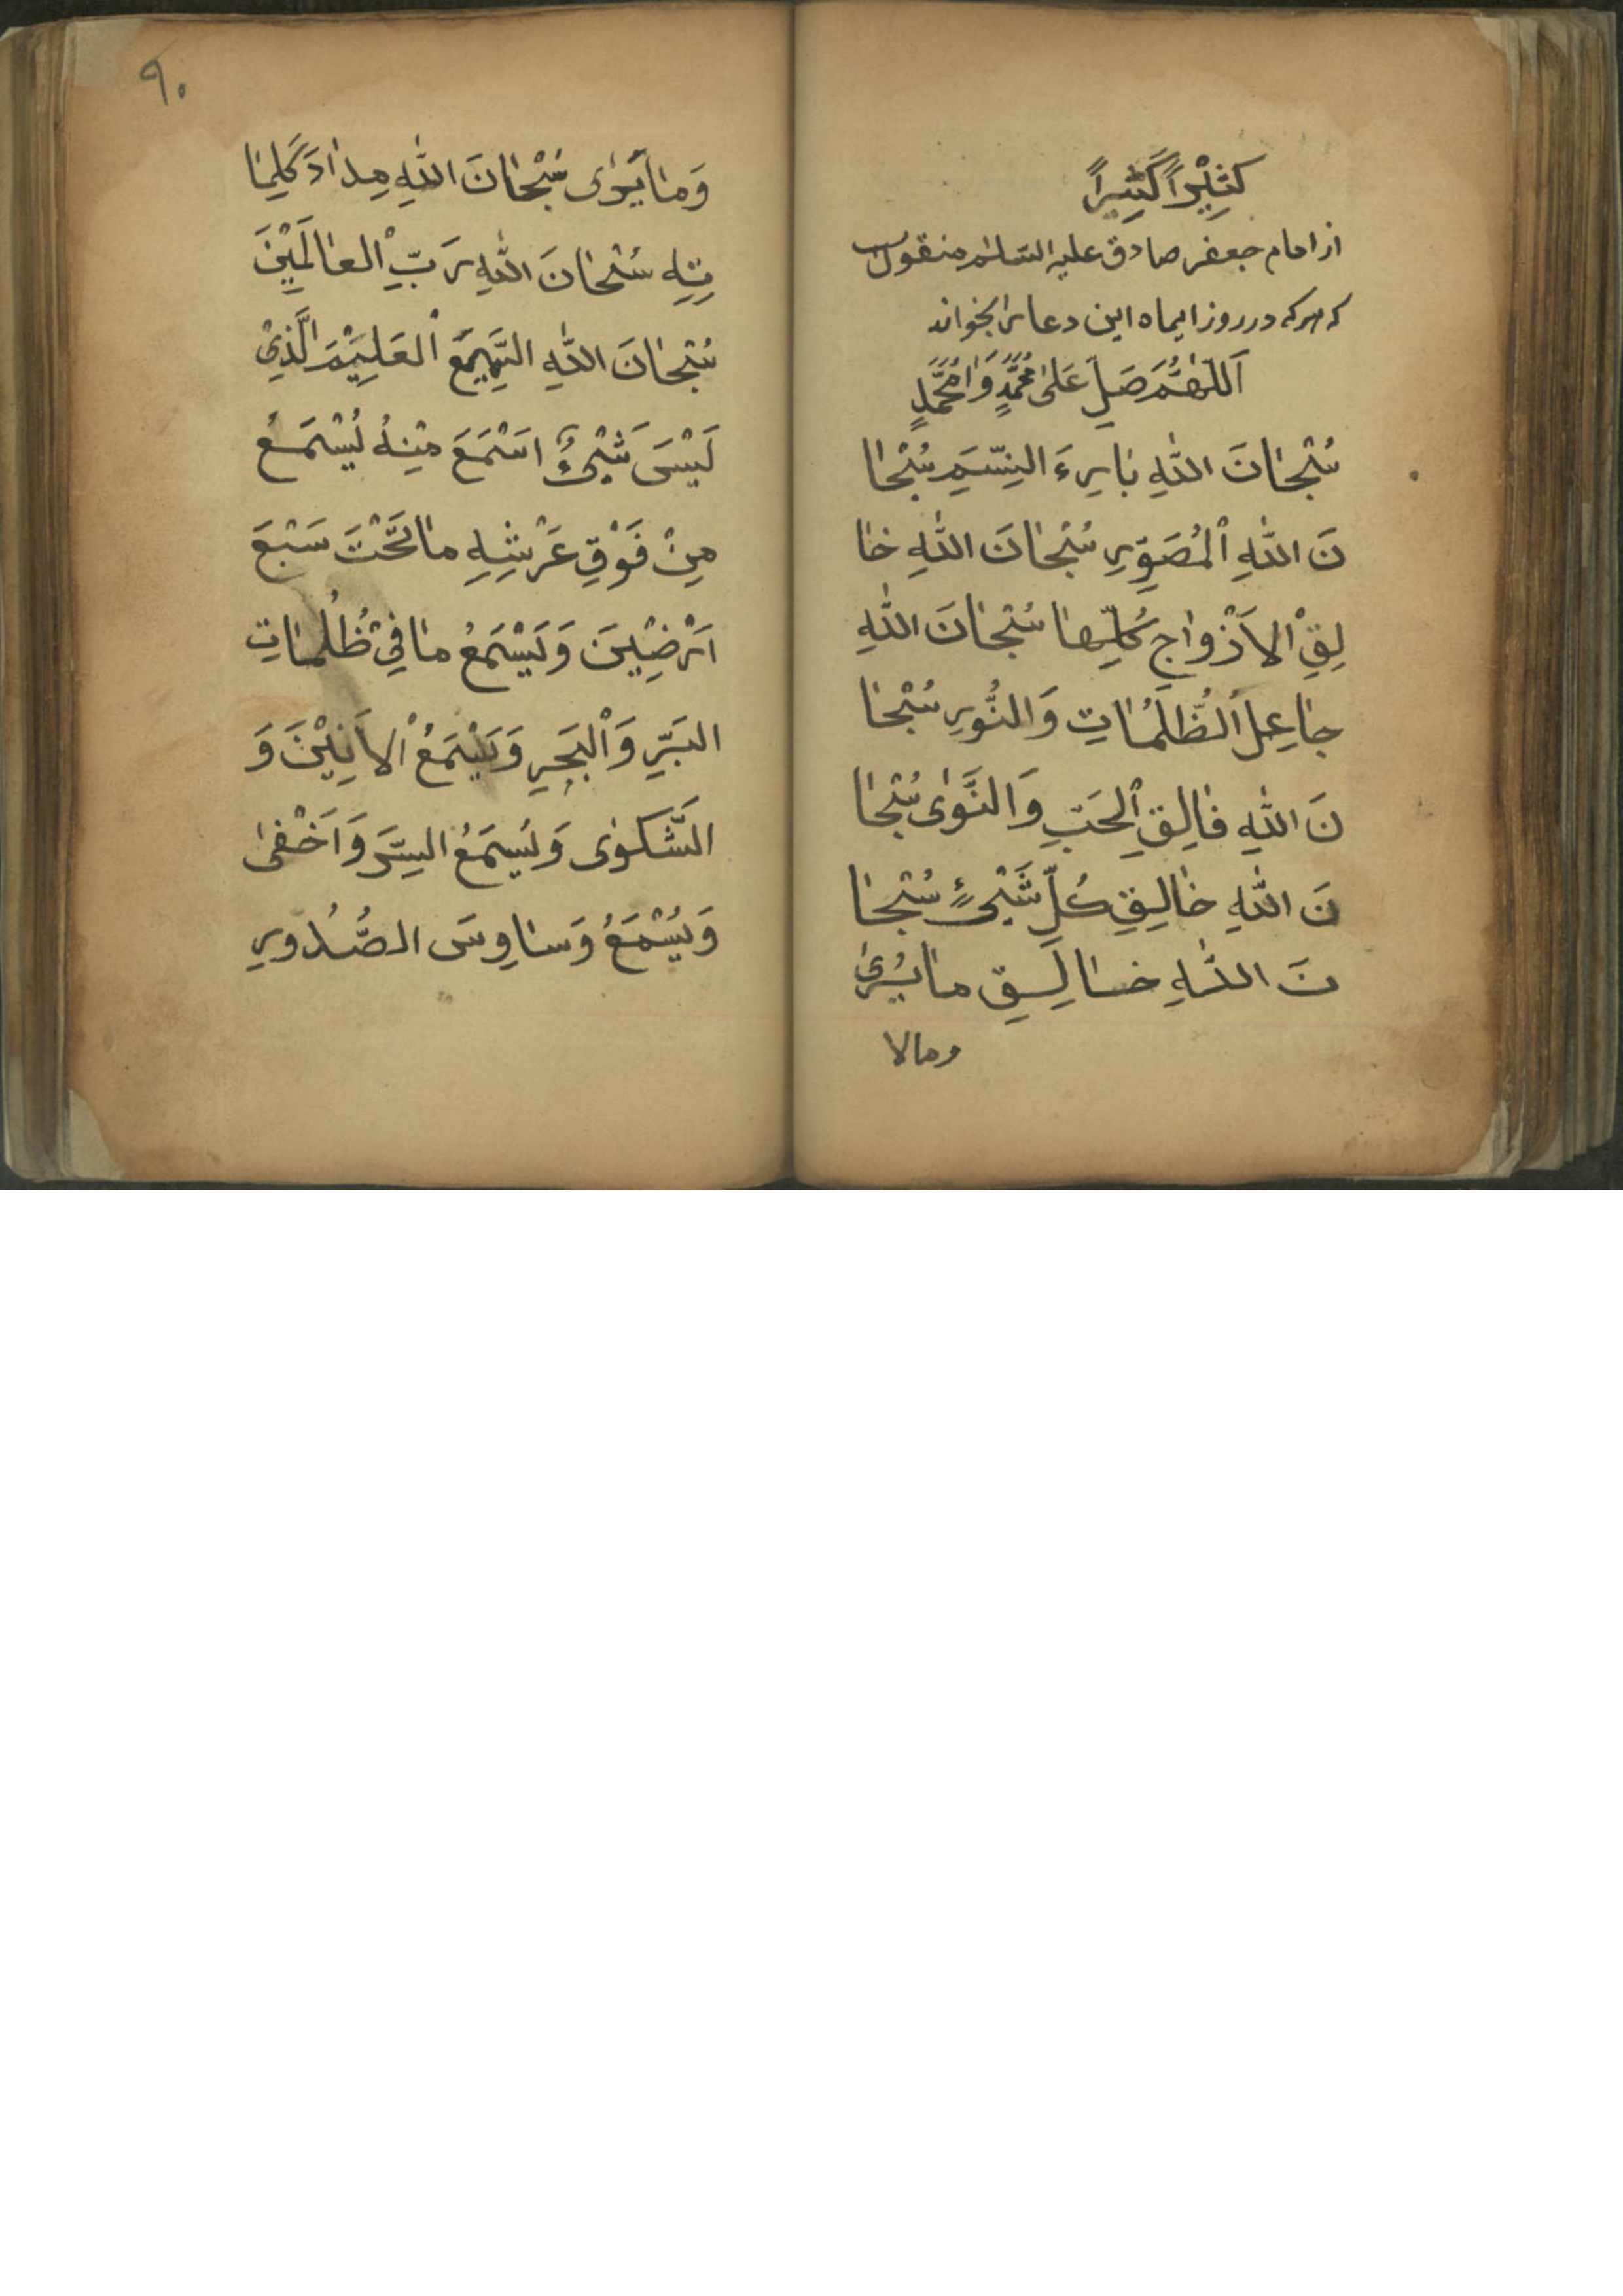 كَثِيْراً كَثِيراً
از امام جعفر صادق علیه السلام منقول
که هرکه در روز ایماه این دعا را بخواند
اَللّهُمَّ صَلِ عَلىٰ مُحَمَّدٍ وَاٰ مُحَمَّدٍ
سُبْحٰانَ اللّٰهِ بٰارِیءَ النِسَّمِ سُبْحٰا
نَ اللّٰهِ الْمُصَوِّرِ سُبْحٰانَ اللّٰهِ خٰا
لِقِ الاَزْوٰاجِ كُلِّهٰا سُبْحٰانَ اللّٰهِ
جٰاعِلِ الظُّلَمُاتِ وَالنُّورِ سُبْحٰا
نَ اللّٰهِ فٰالِقِ الْحَبِّ وَالنَّوٰى سُبْحٰا
نَ اللّٰهِ خٰالِقِ كُلِّ شَیْءٍ سُبْحٰا
نَ اللّٰهِ خٰالِقِ مٰا يُرىٰ
ومالا
٩٠
وَمٰا يَرٰى سُبْحٰانَ اللّٰهِ مِدٰادَ كَلِمٰا
تِهِ سُبْحٰانَ اللّٰهِ رَبِّ الْعٰالَمِيْنَ
سُبْحٰانَ اللّٰهِ السَّمِيعَ الْعَلِيْمَ الَّذِيْ
لَيْسَ شَیْءٌ اسَْمَعَ مِنْهُ يُسْمَعُ
مِنْ فَوْقِ عَرْشِهِ مٰا تَحْتَ سَبْعَ
اَرَْضِيْنَ وَيَسْمَعُ مٰا فِيْ ظُلُمٰاتِ
البَرِّ وَالْبَحِرِ وَيَسْمَعُ الاَنِيْنَ وَ
الشَّكوٰى وَيُسمَعُ السِرَّ وَاَخْفىٰ
وَيُسْمَعُ وَسٰاوِسَ الصُّدُورِ